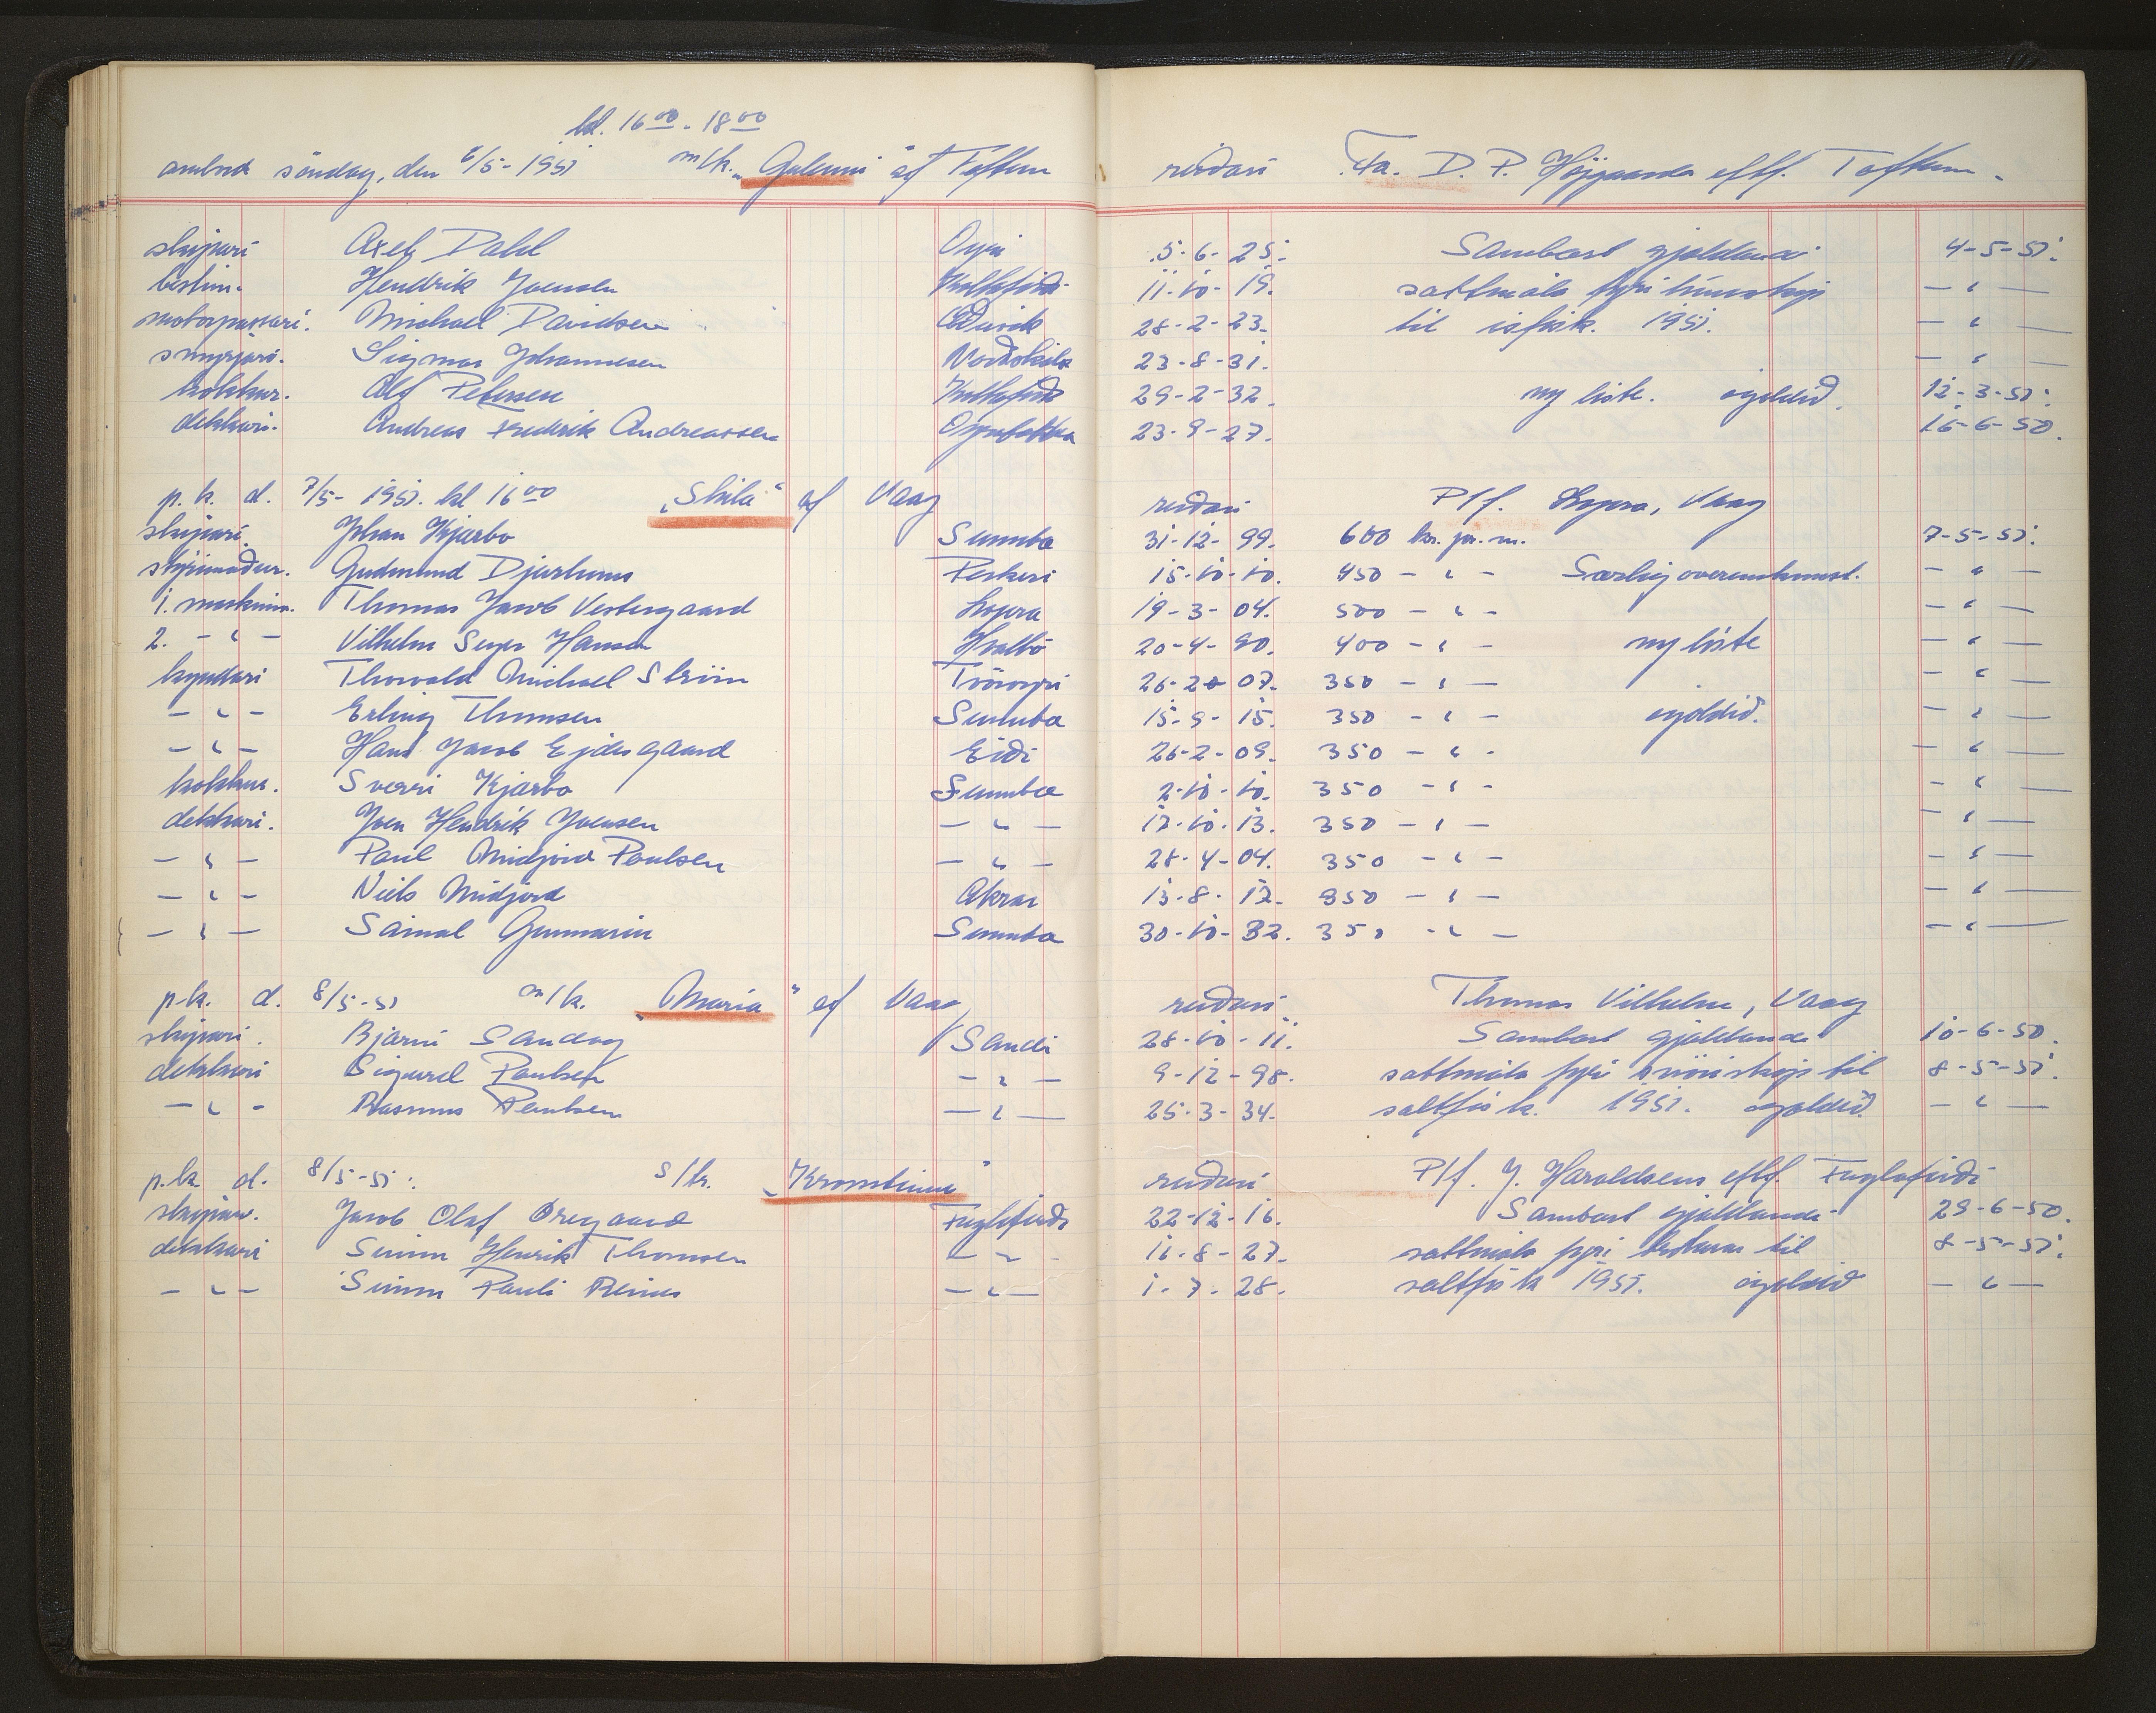 kl. 16 00 - 18 00
ombord söndag, den 6/5-1951 m/k. „Gulenni“ af Toftum reiðari Fa. D. P. Højgaards eftf. Toftum.
skipari Axel Dahl Oyri 5-6-25. Sambært gjaldandi 4-5-51.
bestim. Hendrik Joensen Kollafirði 11-10-19. sáttmála fyri línuskip — " —
motorpassari. Michael Davidsen Eðuvík 28-2-23. til ísfisk. 1951. — " —
smyrjari. Sigmar Johannesen Norðskála 23-8-31. — " —
kokkur. Olf Petersen Kollafirði 29-2-32. ny liste. ógoldið. 12-3-51.
dekkari. Andreas Frederik Andreassen 23-9-27. 16-6-50.
p. k. d. 7/5-1951. kl 16 00 „Skála“ af Vaag reiðari P/f. Lopra, Vaag
skipari. Johan Kjærbo Sumba 31-12-99. 600 kr. pr. m. 7-5-51.
stýrimaður. Gudmund Djurhuus Porkeri 15-10-10. 450 — " — Særlig overenskomst. — " —
1. maskinm. Thomas Jacob Vestergaard Lopra 19-3-04. 500 — " — — " —
2. — " — Vilhelm Hansen Hvalbö 20-4-90. 400 — " — ny liste — " —
kyndari Thorvald Michael Ström 26-2-07. 350 — " — — " —
— " — Erling Thomsen Sumba 15-9-15. 350 — " — ógoldið. — " —
— " — Hans Jacob Ejdesgaard Eiði 26-2-09. 350 — " — — " —
kokkur. Sverri Kjærbo Sumba 2-10-10. 350 — " — — " —
dekkari. Joen Hendrik Joensen — " — 17-10-13. 350 — " — — " —
— " — Paul Midjord Poulsen — " — 28-4-04. 350 — " — — " —
— " — Niels Midjord Akrar 13-8-12. 350 — " — — " —
— " — Sámal Gunnarin Sumba 30-10-32. 350 — " — — " —
p.k. d. 8/5-51 m/k. „Maria“ af Vaag reiðari Thomas Vilhelm, Vaag
skipari. Bjarni Sandoy Sandi 28-10-11. Sambært gjaldandi 10-6-50.
dekkari Sigurd Poulsen — " — 9-12-98. sáttmála fyri snöriskip til 8-5-51.
— " — Rasmus Poulsen — " — 25-3-34. saltfisk. 1951. ógoldið. — " —
p.k. d. 8/5-51. s/tr. „Krosstinnur“ reiðari P/f. J. Haraldsens eftf. Fuglafirði
skipari. Jacob Olaf Öregaard Fuglafirði 22-12-16. Sambært gjaldandi 29-6-50.
dekkari Simun Henrik Thomsen — " — 11-8-27. sáttmála fyri trolarar til 8-5-51.
— " — Simun Pauli Reinus — " — 1-7-28. saltfisk 1951. ógoldið — " —